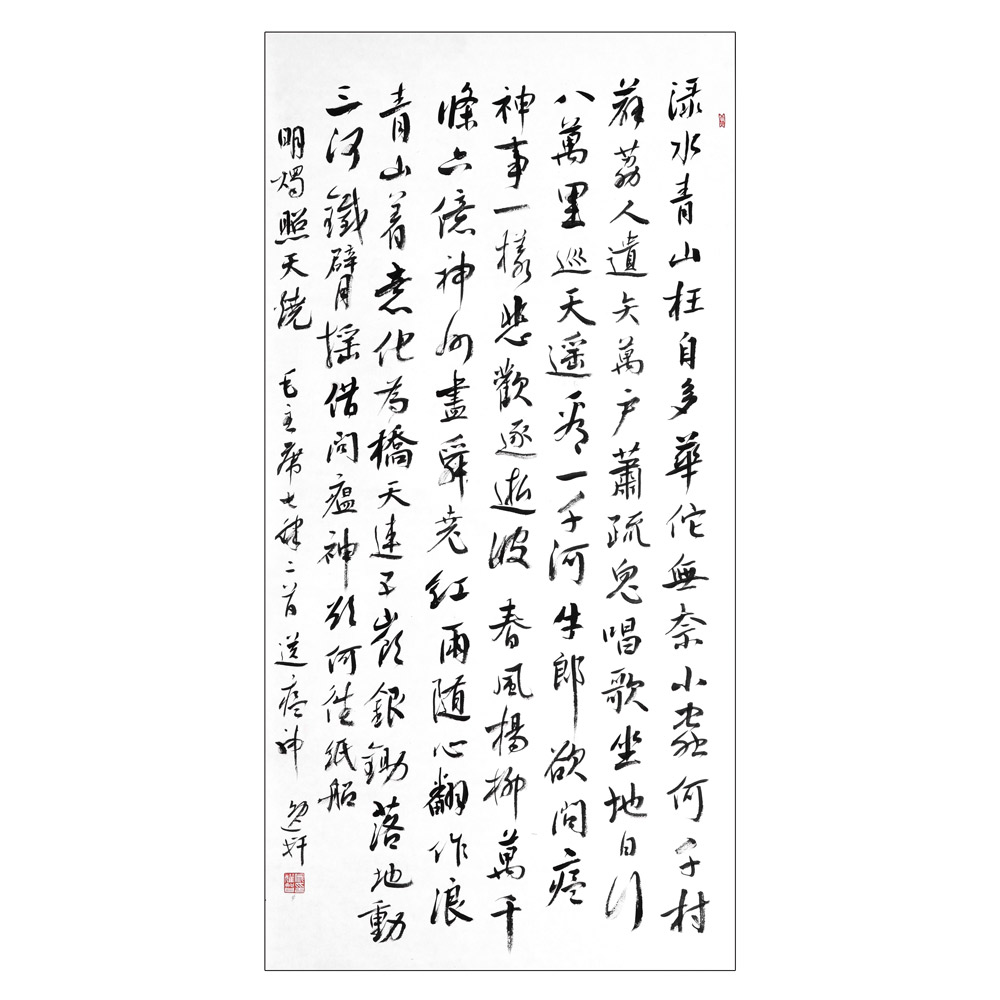 渌水青山枉自多華佗無奈小蟲何千村
薜荔人遺矢萬户蕭疏鬼唱歌坐地日行
八萬里巡天遥看一千河牛郎欲問瘟
神事一樣悲歡逐逝波 春風楊柳萬千
條六億神州盡舜堯紅雨随心翻作浪
青山着意化為橋天連五嶺銀鋤落地動
三河鐵臂摇借問瘟神欲何往紙船
明燭照天燒 毛主席七律二首送瘟神 逸軒